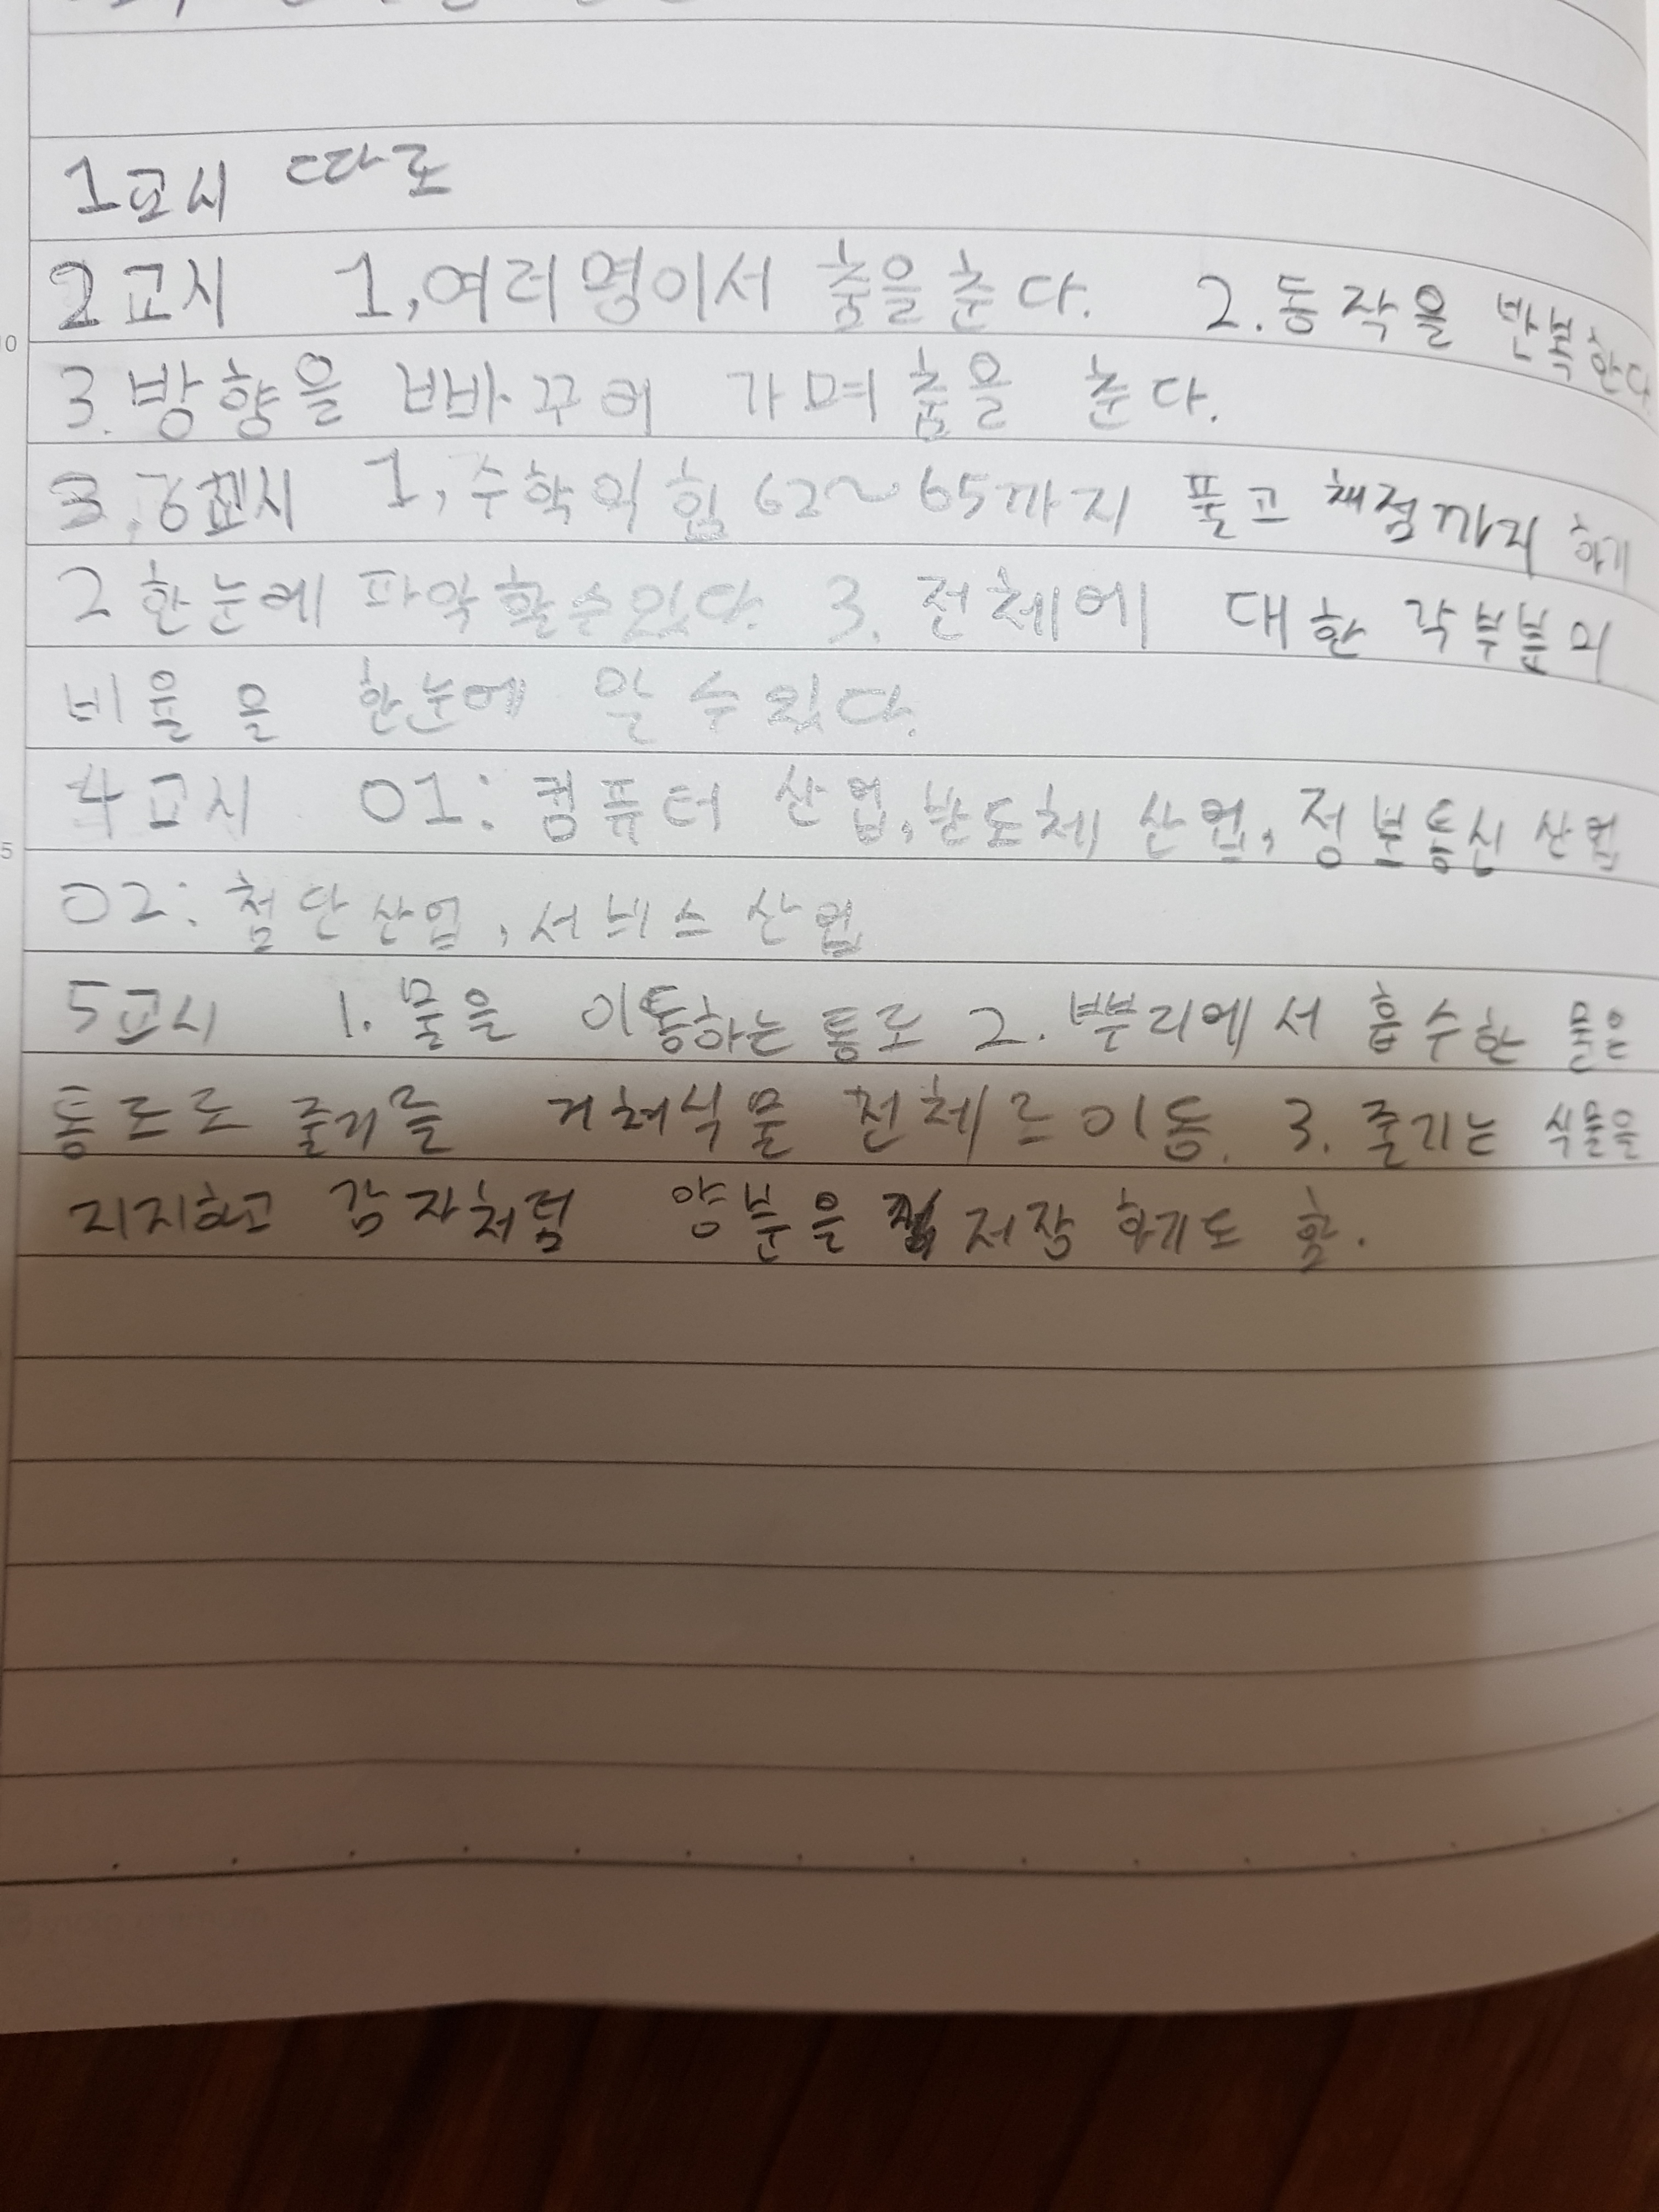 1교시 따로
2교시 1, 여러명이서 춤을 춘다. 2. 동작을 반복한다
3. 방향을 빠바꾸어 가며 춤을 춘다.
3. 교시 1, 수학익힘 62~65까지 풀고 채점까지 하기
2 한눈에 파악할수있다. 3. 전체에 대한 각부분의
비율을 한눈에 알 수 있다.
4교시 01: 컴퓨터 산업, 반도체 산업, 정보통신 산업
02: 첨단산업, 서비스 산업
5교시 1. 물을 이동하는 통로 2. 뿌리에서 흡수한 물은
통로로 줄기를 거쳐식물 전체로 이동. 3. 줄기는 식물을
지지하고 감자처럼 양분을 저장 하기도 함.